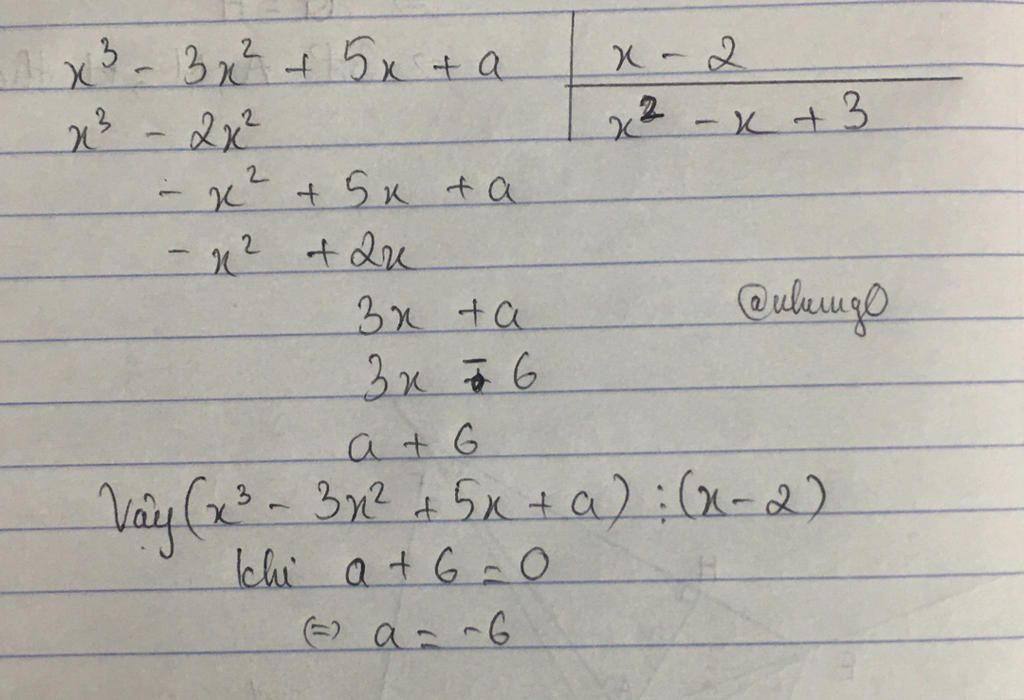 x³ - 3x² + 5x + a | x - 2
x³ - 2x² | x² - x + 3
- x² + 5x + a
- x² + 2x
3x + a
3x - 6
a + 6
Vậy (x³ - 3x² + 5x + a) ⋮ (x - 2)
khi a + 6 = 0
⇔ a = -6